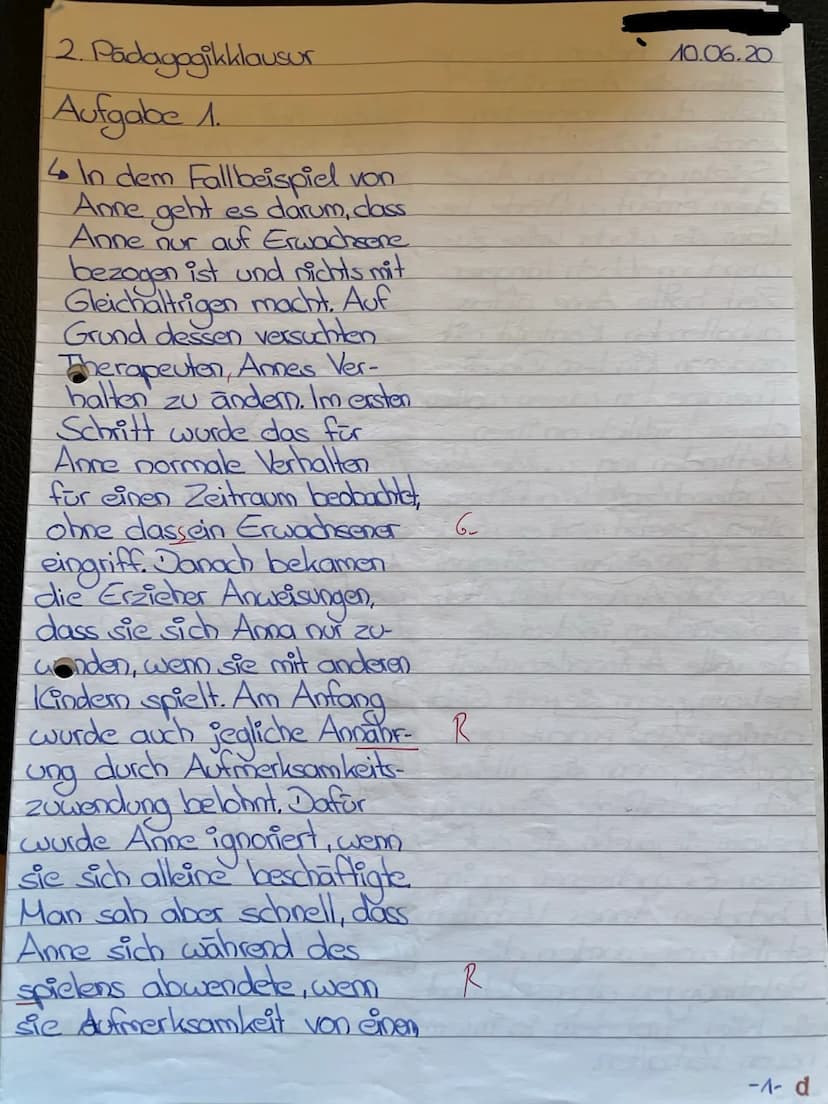 2. Pädagogikklausur
10.06.20
Aufgabe 1.
↳ In dem Fallbeispiel von
Anne geht es darum, dass
Anne nur auf Erwachsene
bezogen ist und nichts mit
Gleichaltrigen macht. Auf
Grund dessen versuchten
Therapeuten, Annes Ver-
halten zu ändern. Im ersten
Schritt wurde das für
Anne normale Verhalten
für einen Zeitraum beobachtet,
ohne dassein Erwachsener
G
eingriff. Danach bekamen
die Erzieher Anweisungen,
dass sie sich Anna nur zu-
wenden, wenn sie mit anderen
Kindern spielt. Am Anfang
wurde auch jegliche Annähr-
R
ung durch Aufmerksamkeits-
zuwendung belohnt. Dafür
wurde Anne ignoriert, wenn
sie sich alleine beschäftigte.
Man sah aber schnell, dass
Anne sich während des
spielens abwendete, wenn
R
sie Aufmerksamkeit von einen
-1- d